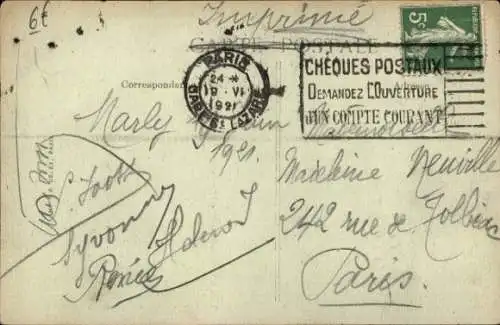 6€
Imprimé
CARTE POSTALE
5
PARIS
24 *
9 VI
1921
GARE St LAZARE
CHÈQUES POSTAUX
DEMANDEZ L'OUVERTURE
D'UN COMPTE COURANT
Correspondan
Marly
1921.
Mademoiselle
Madeleine Neuville
242 rue de Tolbiac
Paris.
Yvonne
Renée